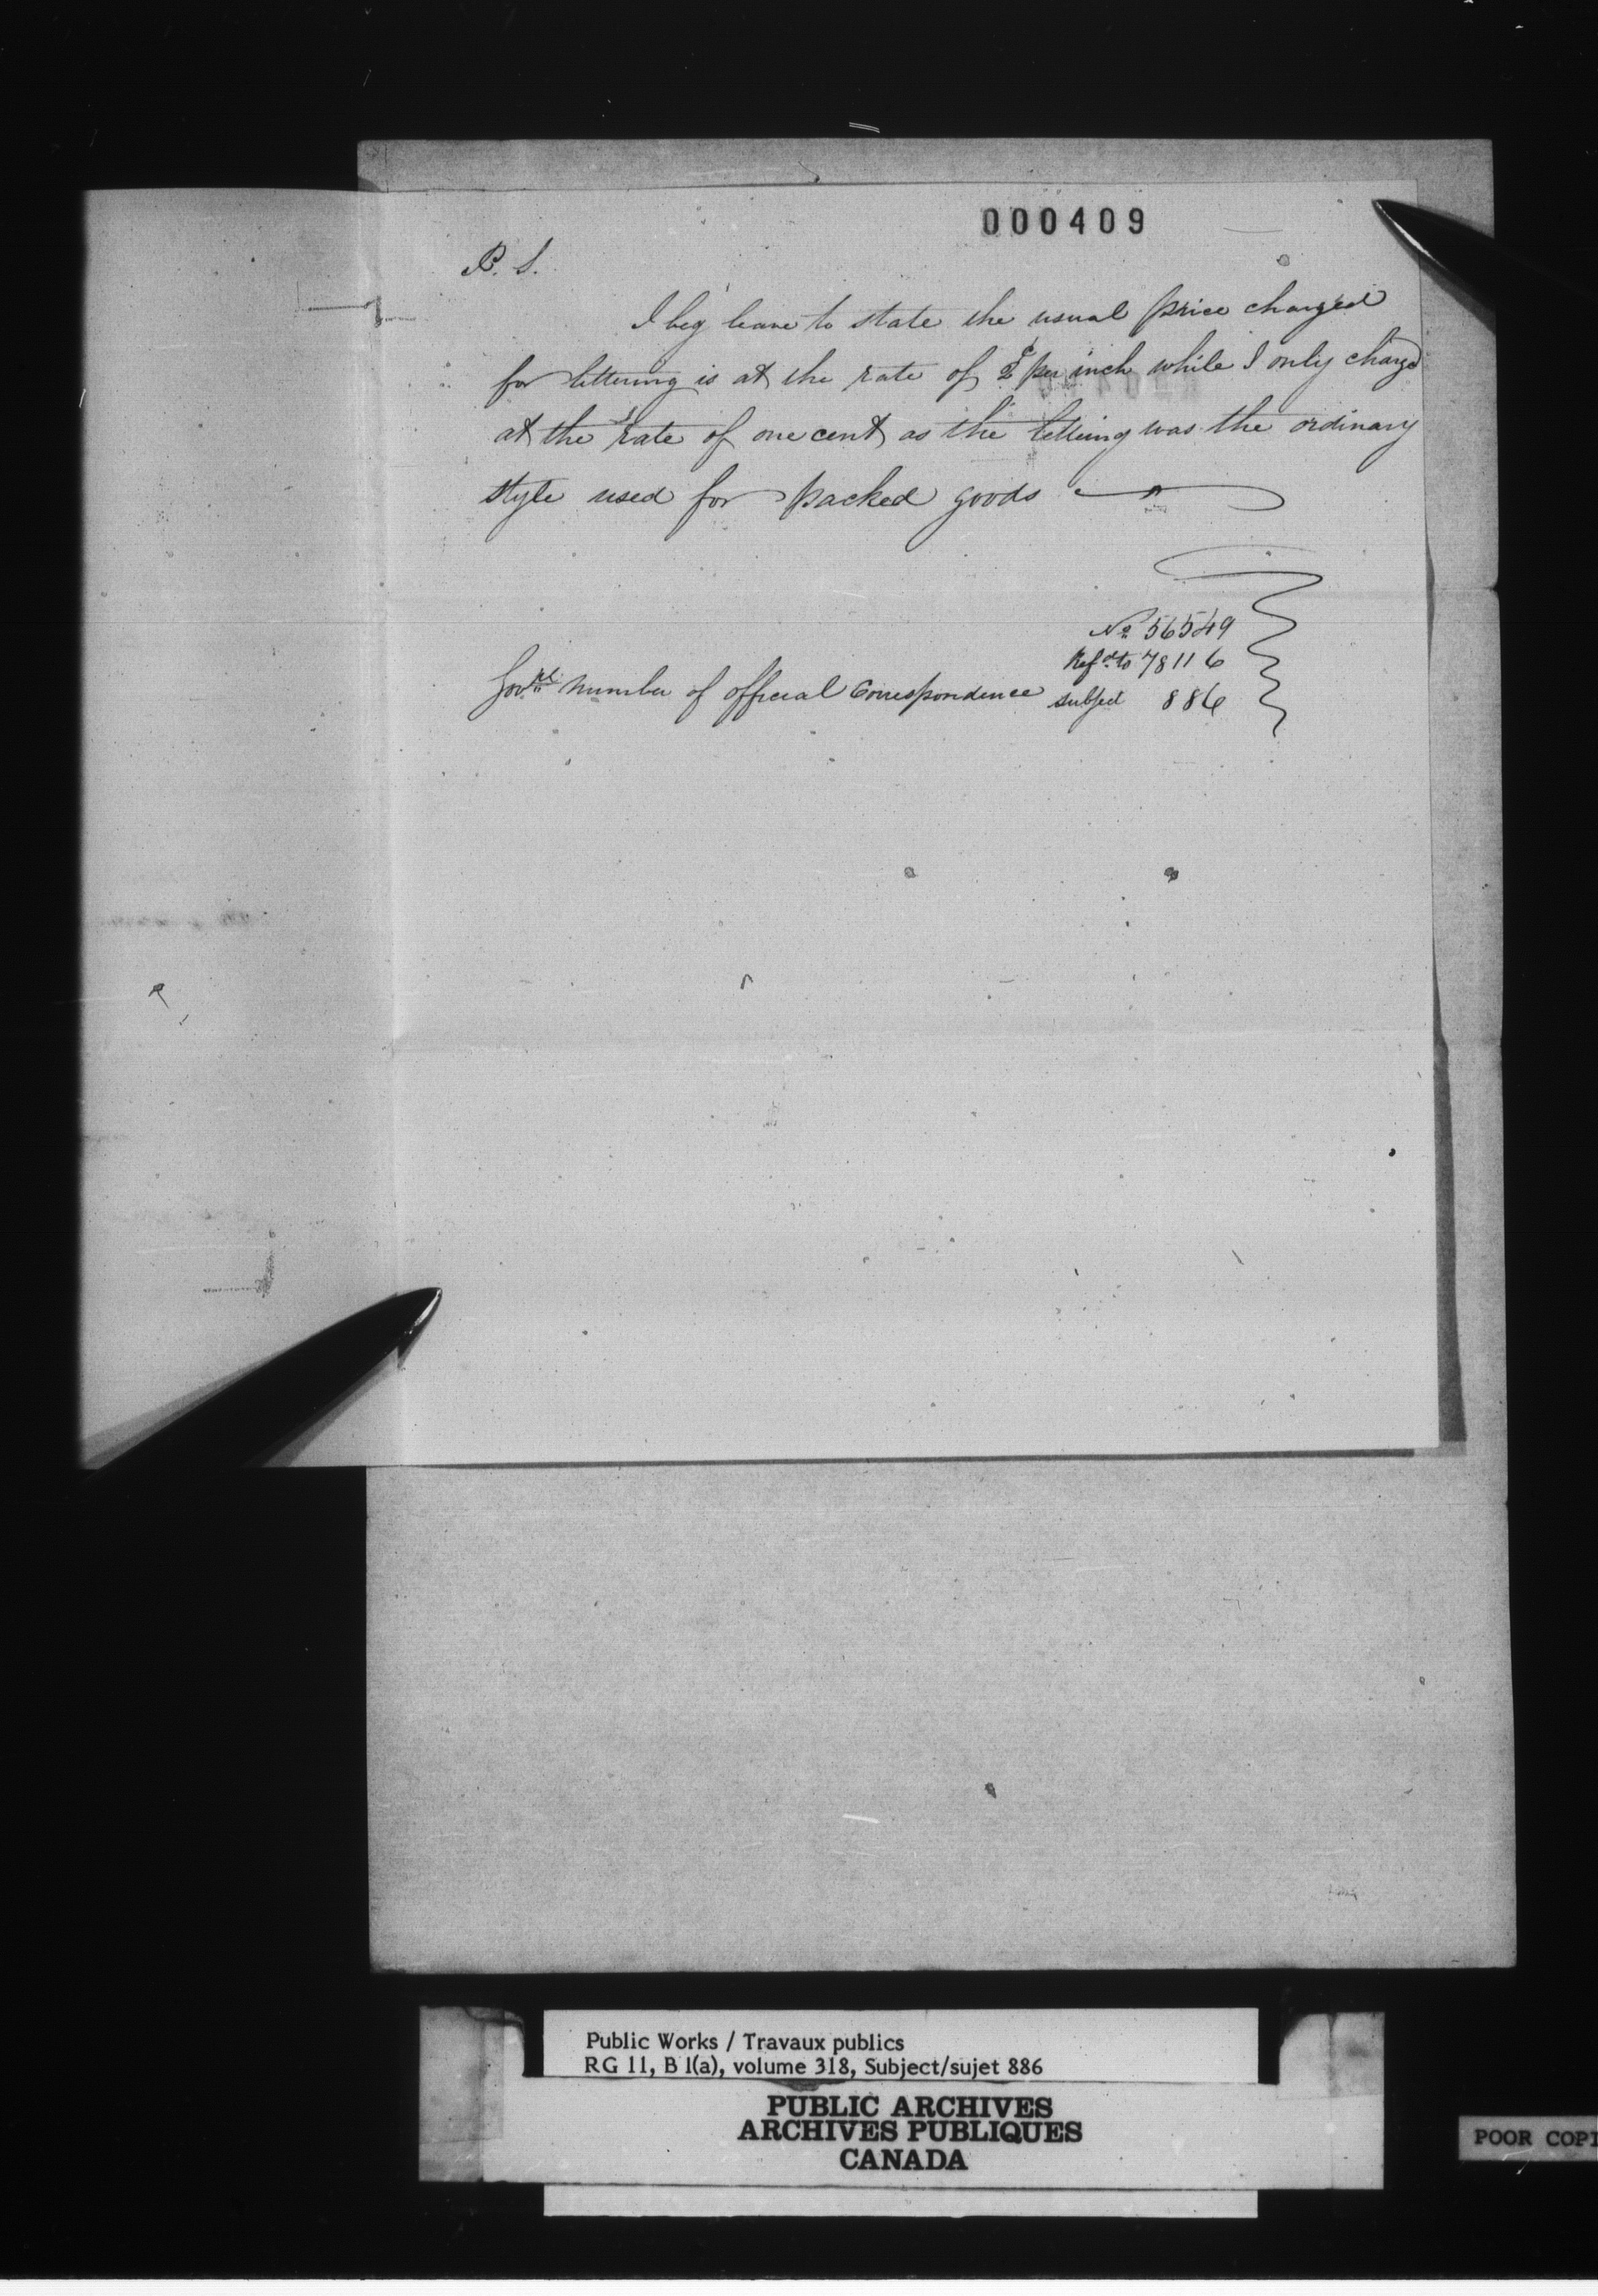 000409
P. S.
I beg leave to state the usual price charged
for lettering is at the rate of 2c per inch while I only charge
at the rate of one cent as the lettering was the ordinary
style used for packed goods
No 56549
Refd. to 78116
Govnt number of official Correspondence subject 886
Public Works / Travaux publics
RG 11, B 1(a), volume 318, Subject/sujet 886
PUBLIC ARCHIVES
ARCHIVES PUBLIQUES
CANADA
POOR COPI